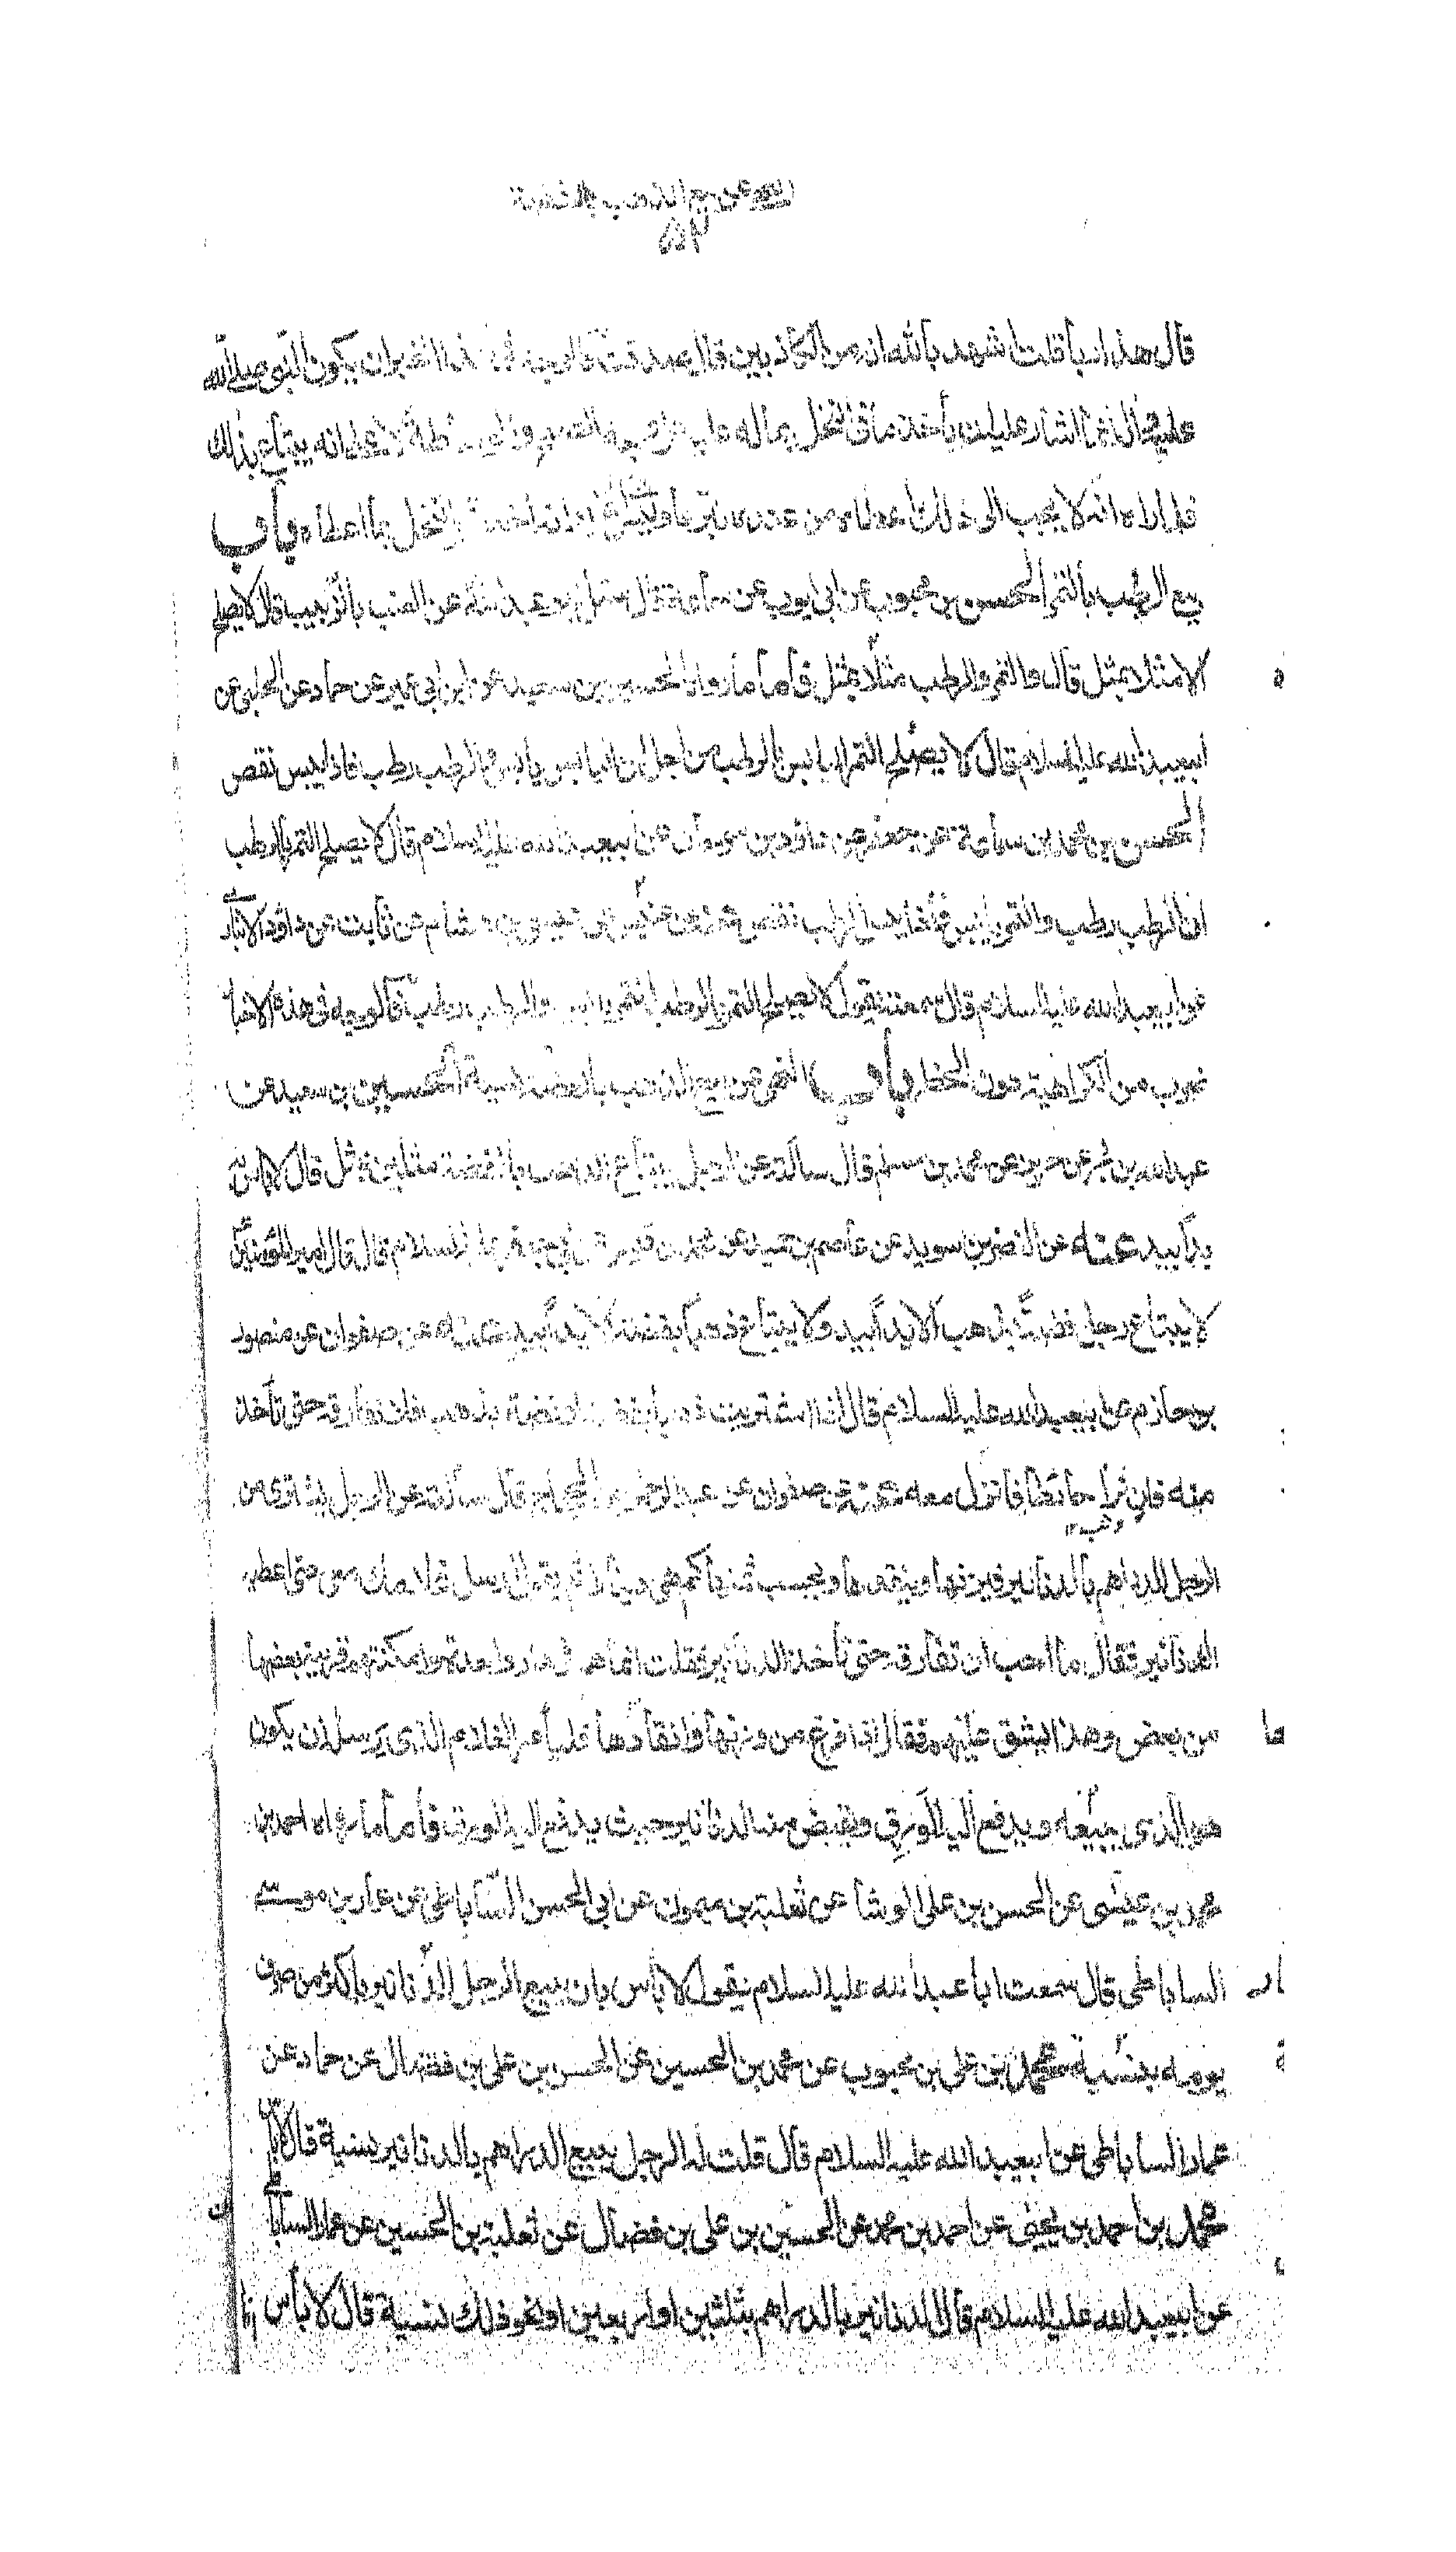 النهى عن بيع الذهب بالفضة
٥٣
قال هذا بابا قلت اشهد بالله انه من الكاذبين قال صدقت فالوجه فى هذا الخبر ان يكون النبى صلى الله
عليه وآله انما اشار عليه ان يأخذ ما فى النخل بماله عليه على وجه الصلح لانه يبتاع بذلك
فلما راه انه لا يجيب الى ذلك اعطاه من عنده اخذ النخل بما اعطاه باب
بيع الرطب بالتمر الحسن بن محبوب عن ابى ايوب عن سماعة قال سئل ابو عبد الله عن العنب بالزبيب قال لا يصلح
الا مثلا بمثل قال والتمر والرطب مثلا بمثل فأما ما رواه الحسين بن سعيد عن ابن ابى عمير عن حماد عن الحلبى عن
ابيعبدالله عليه السلام قال لا يصلح التمر اليابس بالرطب من اجل ان اليابس يابس والرطب رطب فاذا يبس نقص
الحسن بن محمد بن سماعة عن جعفر عن داود بن سرحان عن ابيعبدالله عليه السلام قال لا يصلح التمر بالرطب
ان الرطب رطب والتمر يابس فاذا يبس الرطب نقص عنه عن عبيس بن هشام عن ثابت عن داود الابزارى
عن ابيعبدالله عليه السلام قال سمعته يقول لا يصلح التمر بالرطب التمر يابس والرطب رطب فالوجه فى هذه الاخبار
ضرب من الكراهية دون الحظر باب النهى عن بيع الذهب بالفضة نسية الحسين بن سعيد عن
عبدالله بن بحر عن حريز عن محمد بن مسلم قال سالته عن الرجل يبتاع الذهب بالفضة مثلين بمثل قال لا باس به
يدا بيد عنه عن النضر بن سويد عن عاصم بن حميد عن محمد بن قيس عن ابى جعفر عليه السلام قال قال امير المؤمنين
لا يبتاع رجل فضة بذهب الا يدا بيد ولا يبتاع ذهبا بفضة الا يدا بيد عنه عن صفوان عن منصور
بن حازم عن ابيعبدالله عليه السلام قال اذا اشتريت ذهبا بفضة او فضة بذهب فلا تفارقه حتى تأخذ
منه فان نزا حائطا فانزل معه عنه عن صفوان عن عبدالرحمن بن الحجاج قال سألته عن الرجل يشترى من
الرجل الدراهم بالدنانير فيزنها وينقدها ويحسب ثمنها كم هى دينارا ثم يقول ارسل غلامك معى حتى اعطيه
الدنانير فقال ما احب ان تفارقه حتى تأخذ الدنانير فقلت انما هم فى دار واحدة وامكنتهم قريبة بعضها
من بعض وهذا يشق عليهم فقال اذا فرغ من وزنها وانقادها فليأمر الغلام الذى يرسله ان يكون
هو الذى يبيعه ويدفع اليه الورق ويقبض منه الدنانير حيث يدفع اليه الورق فأما ما رواه احمد بن
محمد بن عيسى عن الحسن بن على الوشا عن ثعلبة بن ميمون عن ابى الحسن الساباطى عن عمار بن موسى
الساباطى قال سمعت ابا عبدالله عليه السلام يقول لا بأس بان يبيع الرجل الدنانير باكثر من صرف
يومه بنسية محمد بن على بن محبوب عن محمد بن الحسين عن الحسن بن على بن فضال عن حماد عن
عمار الساباطى عن ابيعبدالله عليه السلام قال قلت له الرجل يبيع الدراهم بالدنانير بنسية قال لا بأس
محمد بن احمد بن يحيى عن احمد بن محمد عن الحسين بن على بن فضال عن ثعلبة بن الحسين عن عمار الساباطى
عن ابيعبدالله عليه السلام قال الدنانير بالدراهم بثلثين او اربعين او نحو ذلك نسية قال لا بأس